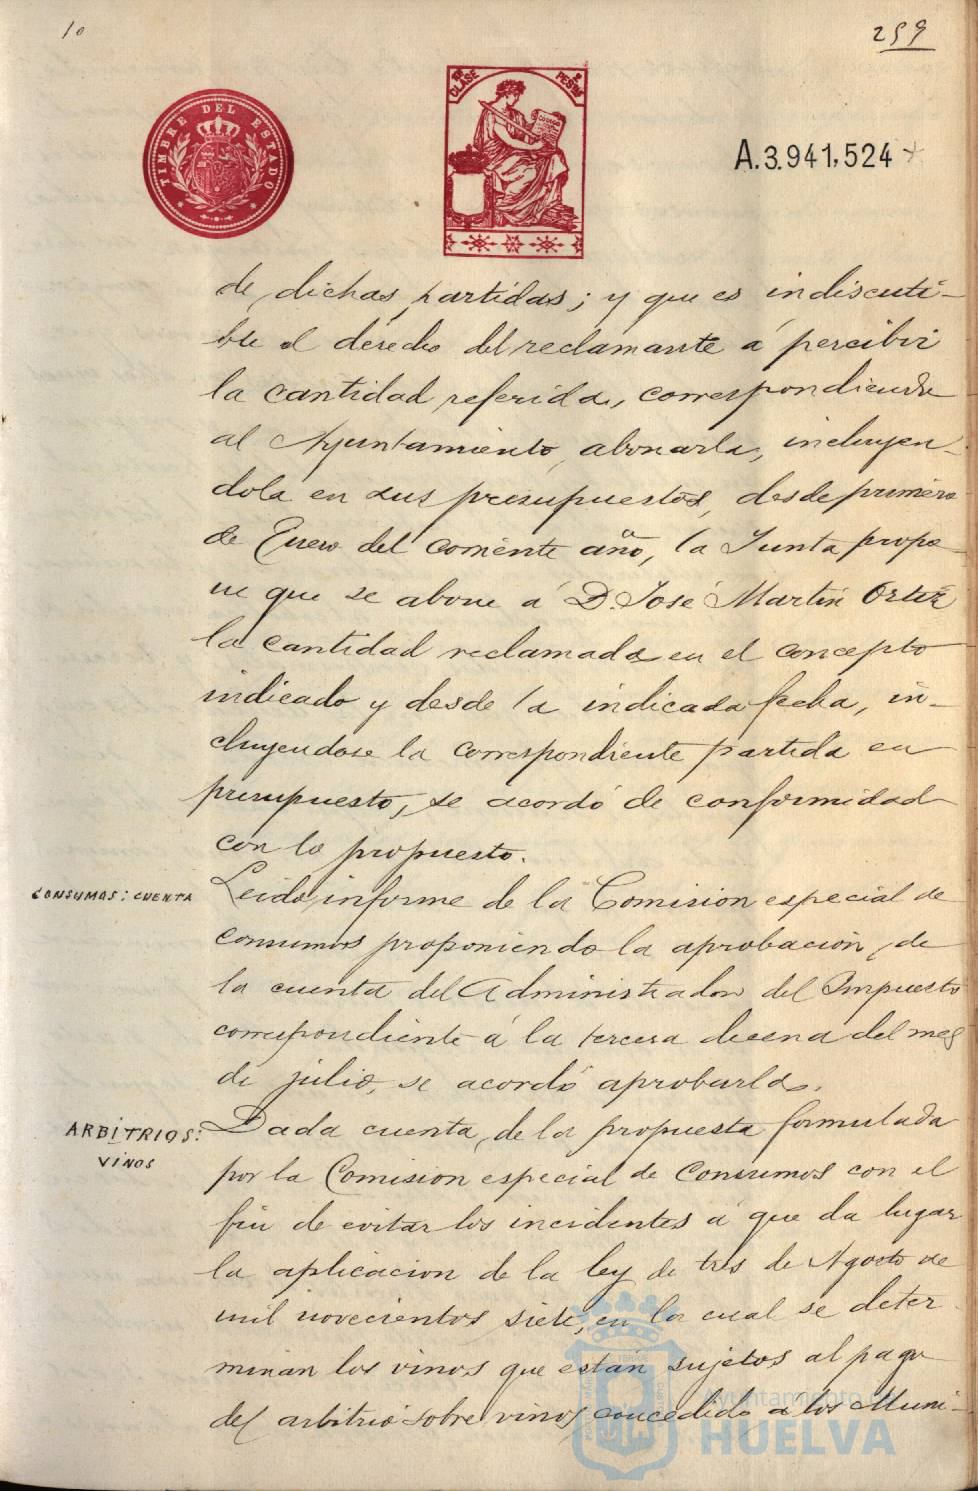 10
259
TIMBRE DEL ESTADO
CLASE
PESETAS
A.3.941,524
de dichas partidas; y que es indiscuti-
ble el derecho del reclamante á percibir
la cantidad referida, correspondiendo
al Ayuntamiento abonarla, incluyen-
dola en sus presupuestos, desde primero
de Enero del corriente año, la Junta propo-
ne que se abone á D. José Martin Ortiz
la cantidad reclamada en el concepto
indicado y desde la indicada fecha, in-
cluyendose la correspondiente partida en
presupuesto, se acordó de conformidad
con lo propuesto.
CONSUMOS: CUENTA
Leido informe de la Comision especial de
consumos proponiendo la aprobacion de
la cuenta del Administrador del Impuesto
correspondiente á la tercera decena del mes
de julio, se acordó aprobarla.
ARBITRIOS:
VINOS
Dada cuenta de la propuesta formulada
por la Comision especial de Consumos con el
fin de evitar los incidentes á que da lugar
la aplicacion de la ley de tres de Agosto de
mil novecientos siete, en la cual se deter-
minan los vinos que están sujetos al pago
del arbitrio sobre vinos concedido a los Muni-
Ayuntamiento de
HUELVA